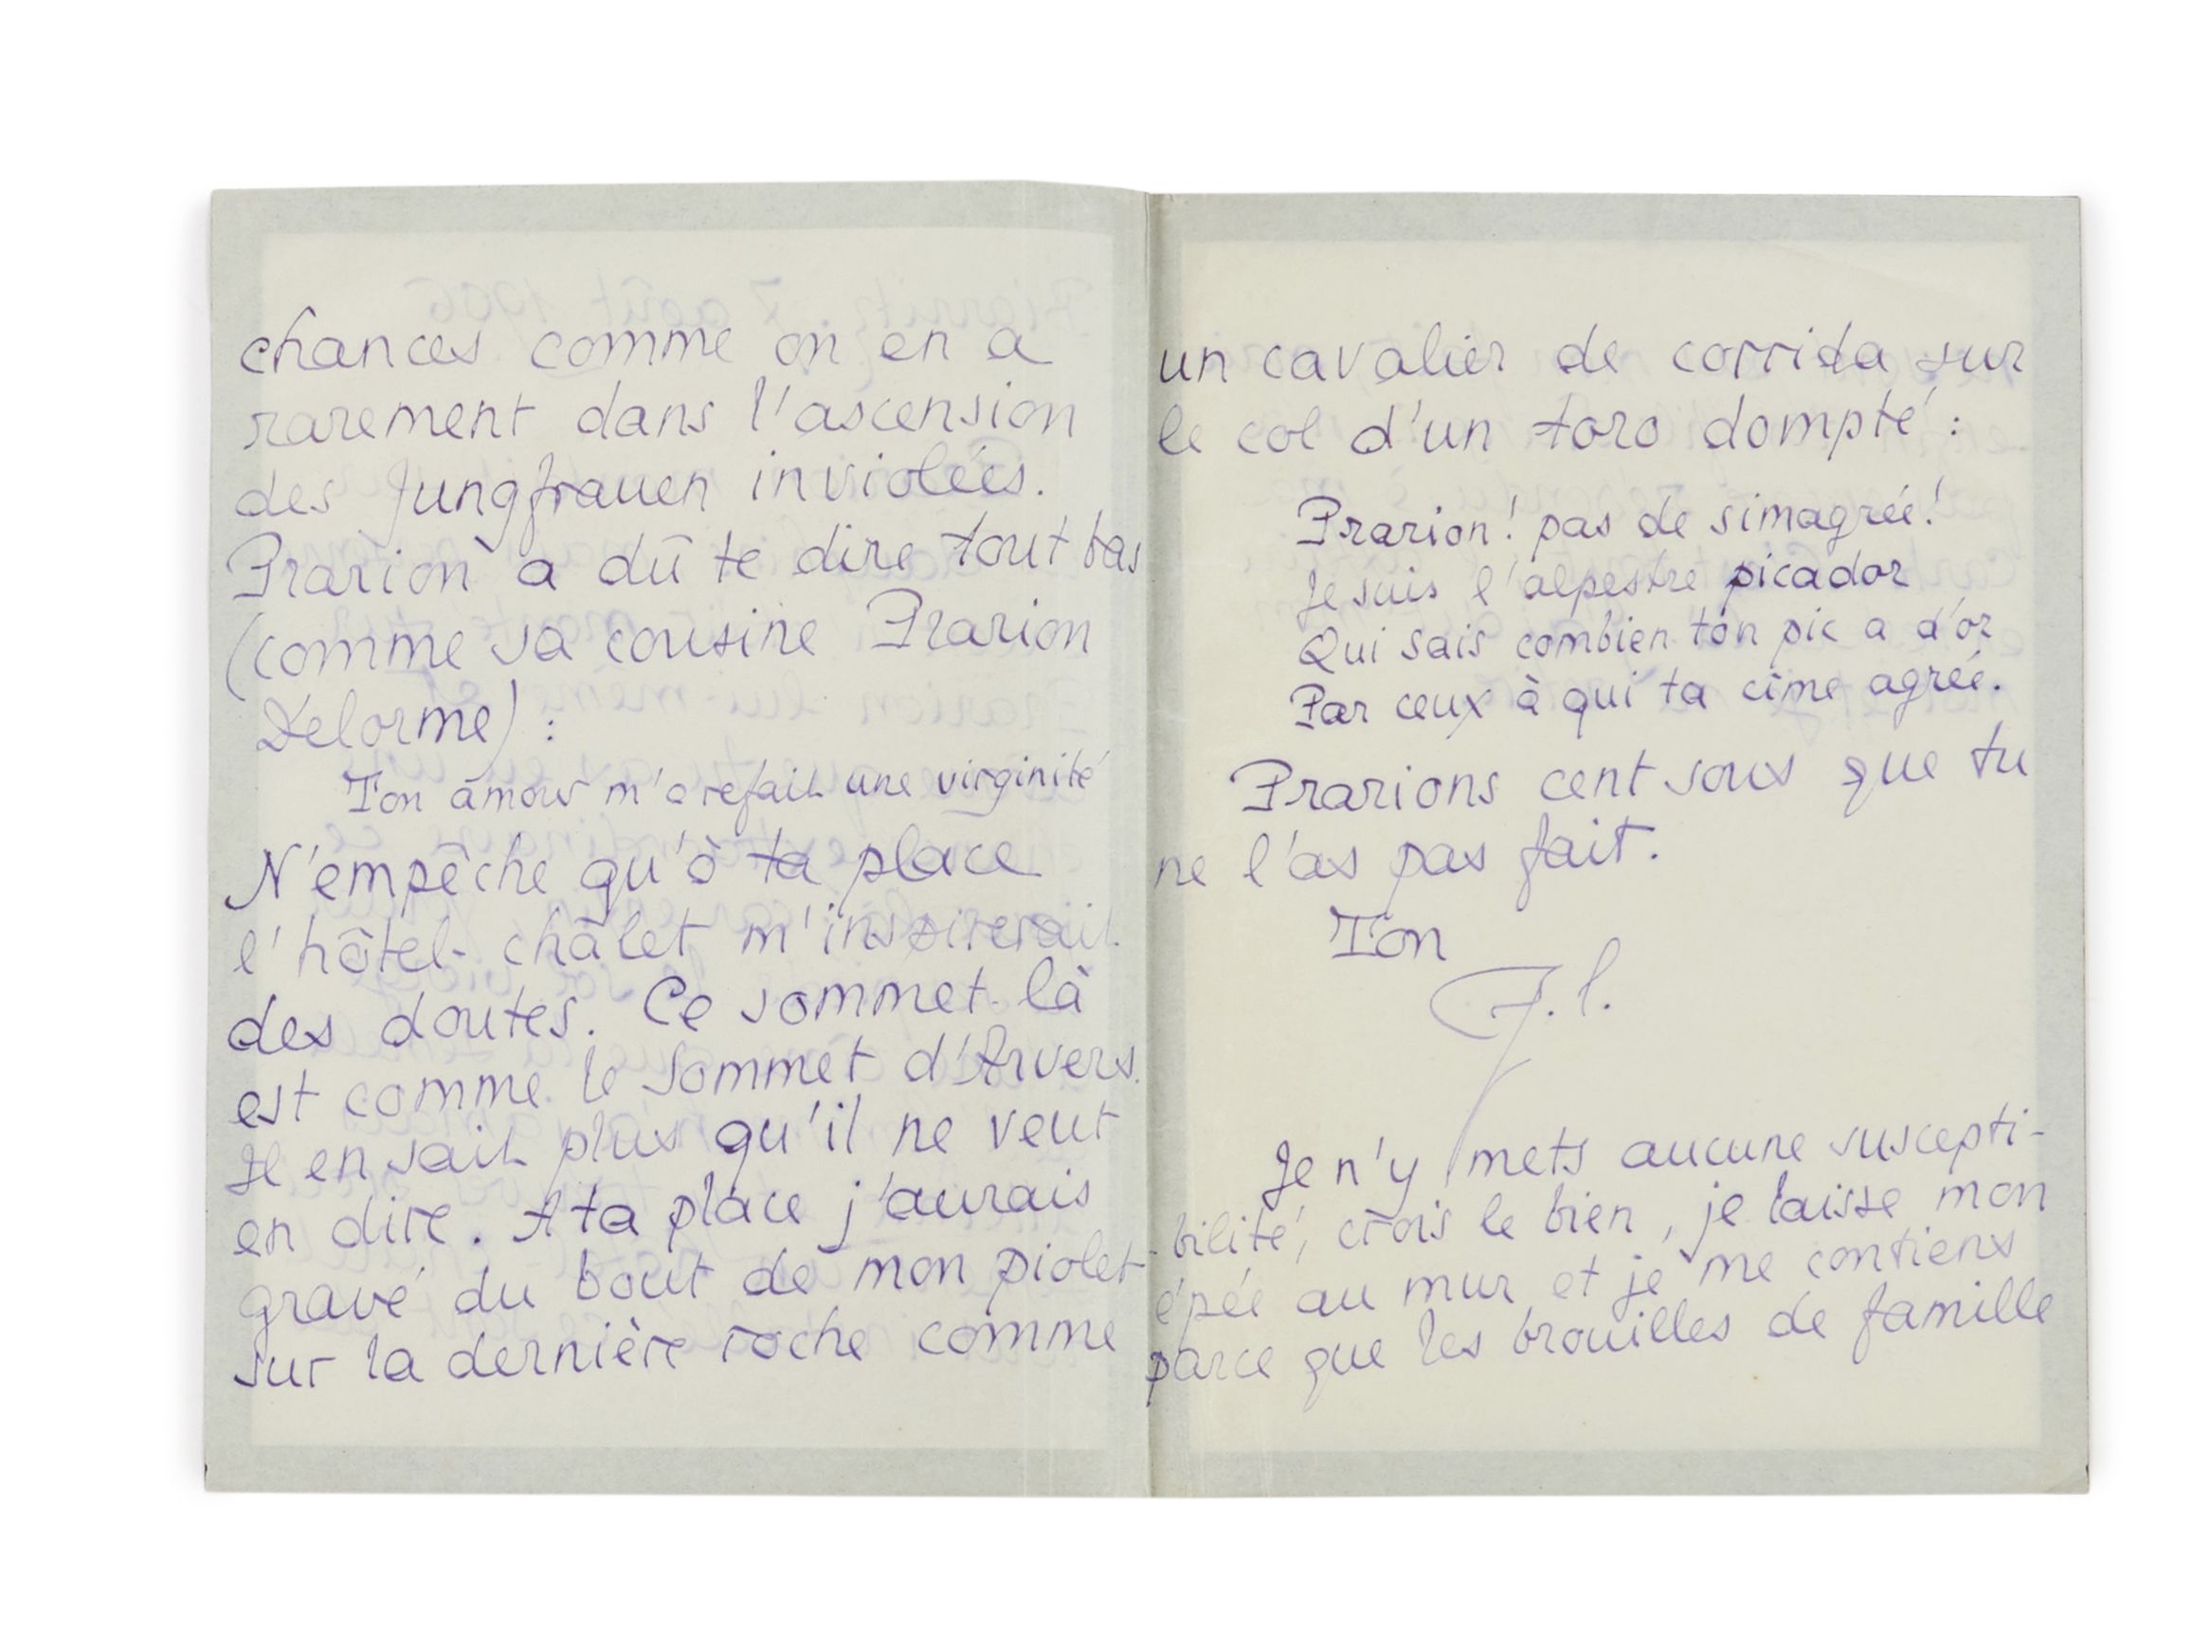 chances comme on en a
rarement dans l'ascension
des Jungfrauen inviolées.
Prarion a dû te dire tout bas
(comme sa cousine Prarion
Delorme) :
Ton amour m'a refait une virginité
N'empêche qu'à ta place
l'hôtel-châlet m'inspirerait
des doutes. Ce sommet là
est comme le sommet d'Arvers.
Il en sait plus qu'il ne veut
en dire. A ta place j'aurais
gravé du bout de mon piolet
sur la dernière roche comme
un cavalier de corrida sur
le col d'un toro dompté :
Prarion ! pas de simagrée !
Je suis l'alpestre picador
Qui sais combien ton pic a d'or
Par ceux à qui ta cîme agrée.
Prarions cent sous que tu
ne l'as pas fait.
Ton
J. l.
Je n'y mets aucune suscepti-
-bilité, crois le bien, je laisse mon
épée au mur et je me contiens
parce que les brouilles de famille